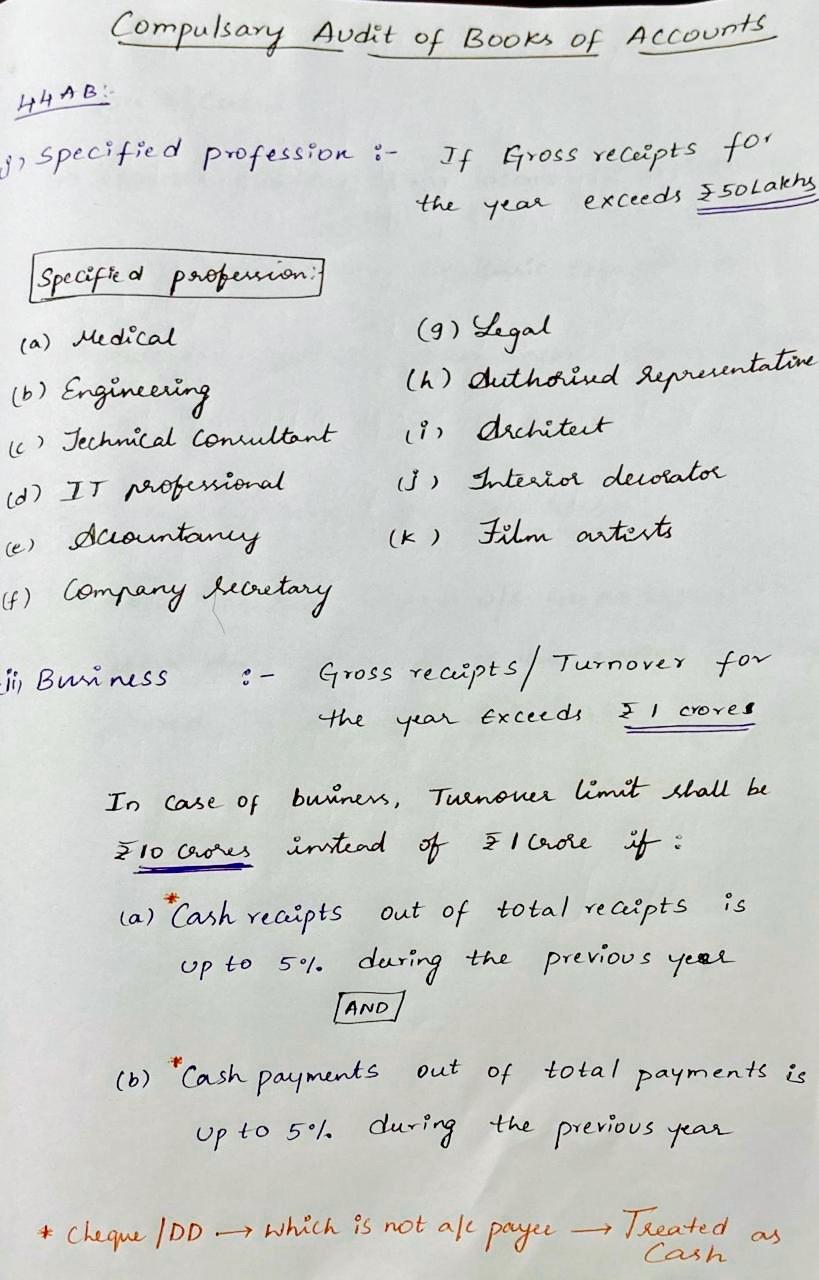 Compulsary Audit of Books of Accounts
44AB:-
i) Specified profession :- If Gross receipts for
the year exceeds ₹50Lakhs
Specified profession:-
(a) Medical
(b) Engineering
(c) Technical Consultant
(d) IT professional
(e) Accountancy
(f) Company Secretary
(g) Legal
(h) Authorised Representative
(i) Architect
(j) Interior decorator
(k) Film artists
ii) Business :- Gross receipts/Turnover for
the year Exceeds ₹ 1 crores
In case of business, Turnover limit shall be
₹10 crores instead of ₹1 Crore if :
(a) *Cash receipts out of total receipts is
up to 5% during the previous year
AND
(b) *Cash payments out of total payments is
up to 5% during the previous year
* Cheque/DD → which is not a/c payee → Treated as
Cash